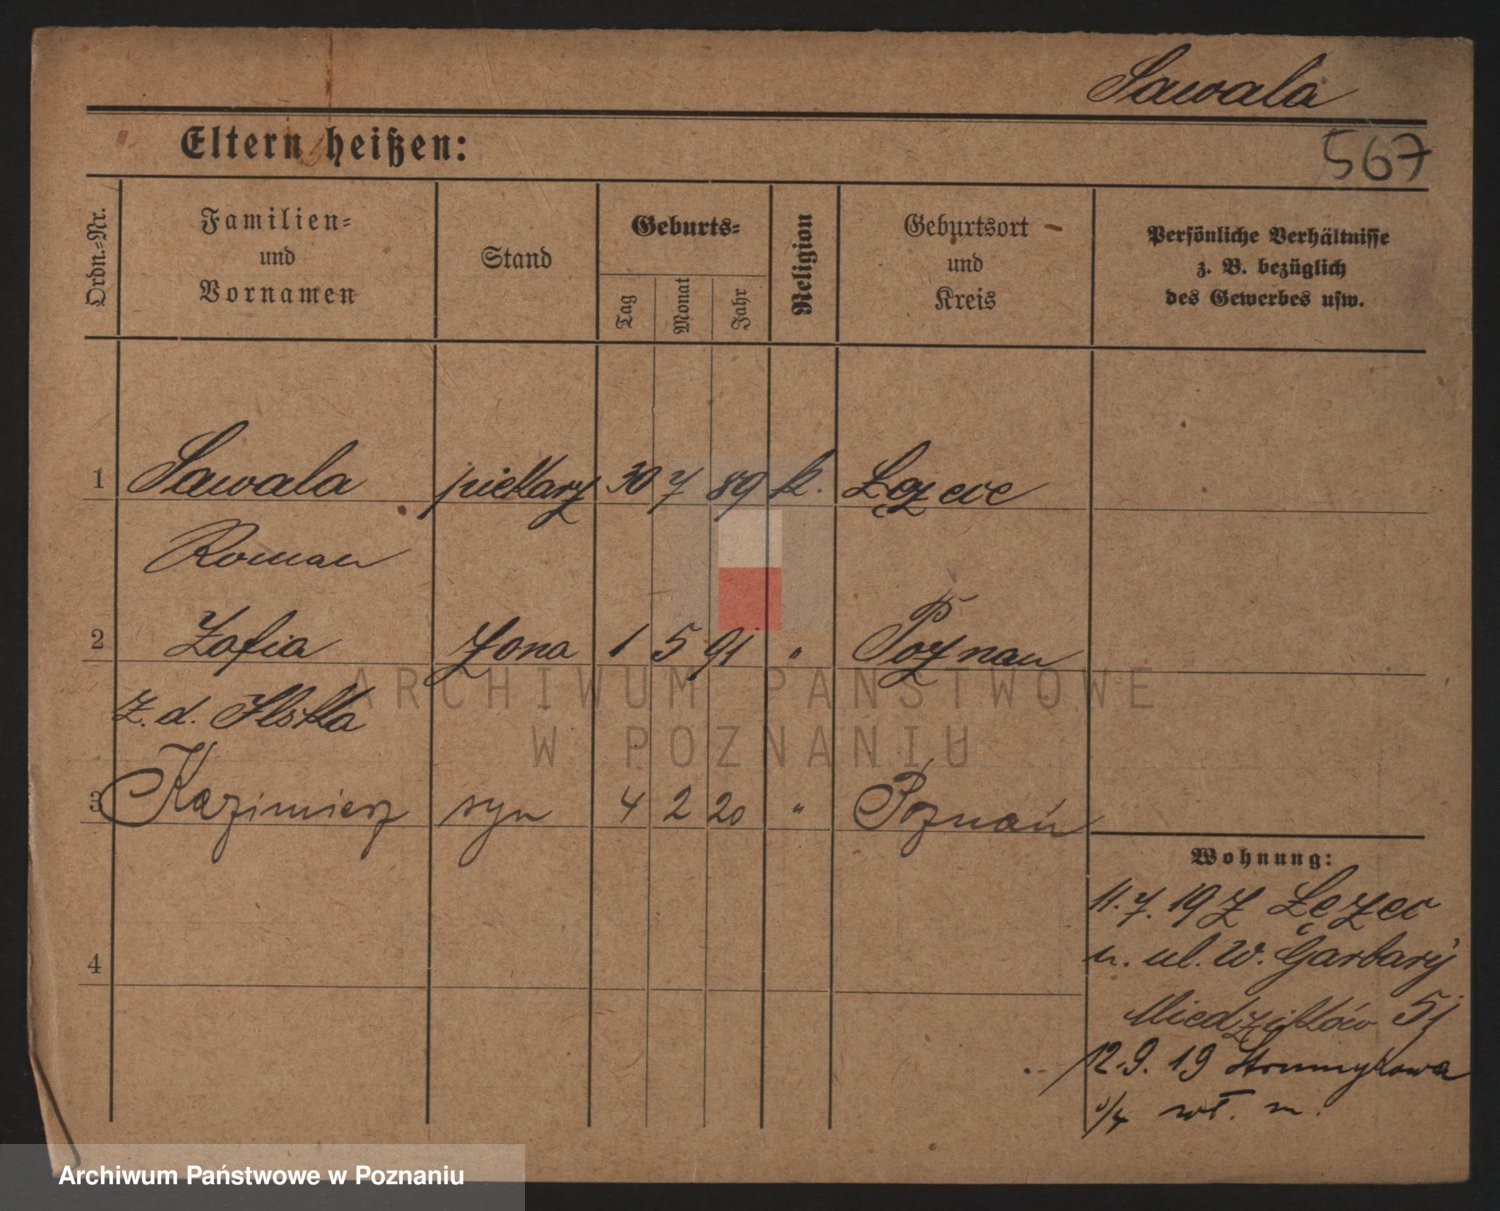 Sawala
Eltern heißen:
567
Ordn.=Nr.
Familien=
und
Vornamen
Stand
Geburts=
Tag
Monat
Jahr
Religion
Geburtsort
und
Kreis
Persönliche Verhältnisse
z. B. bezüglich
des Gewerbes usw.
1 Sawala piekarz 30 7 89 k.
Roman
2 Zofia żona 1 5 91 " Poznań
z. d.
3 Kazimierz syn 4 2 20 " Poznań
Wohnung:
11. 7. 19 z
u. ul. W. Garbary
51
12. 9. 19 Strumykowa
wł. m.
4
ARCHIWUM PAŃSTWOWE
W POZNANIU
Archiwum Państwowe w Poznaniu